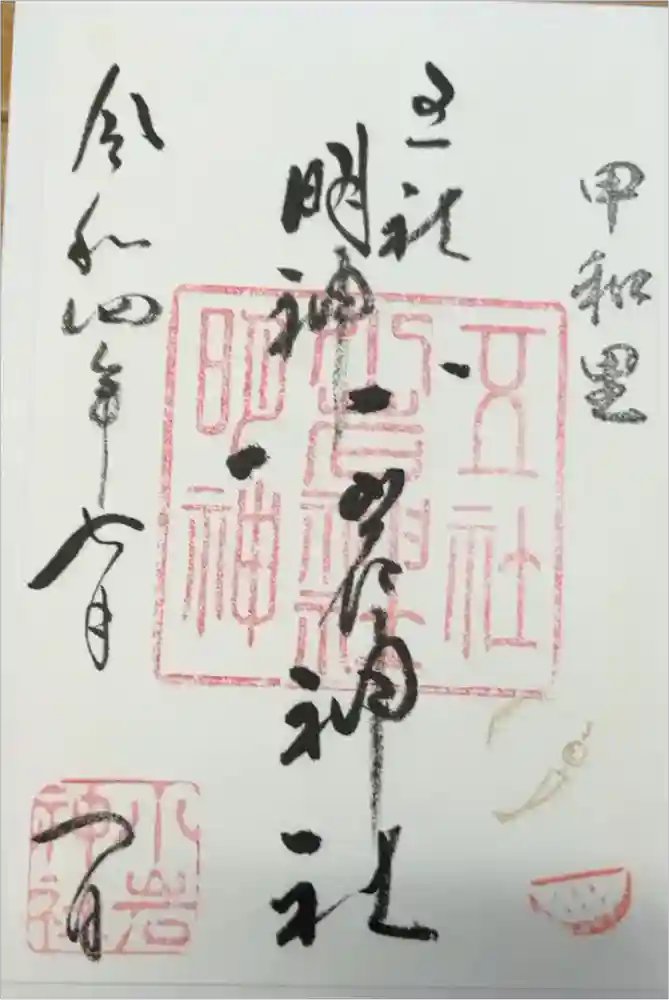 甲和里
五社
明神
小岩神社
令和四年七月一日
五社
小岩神社
明神
小岩
神社